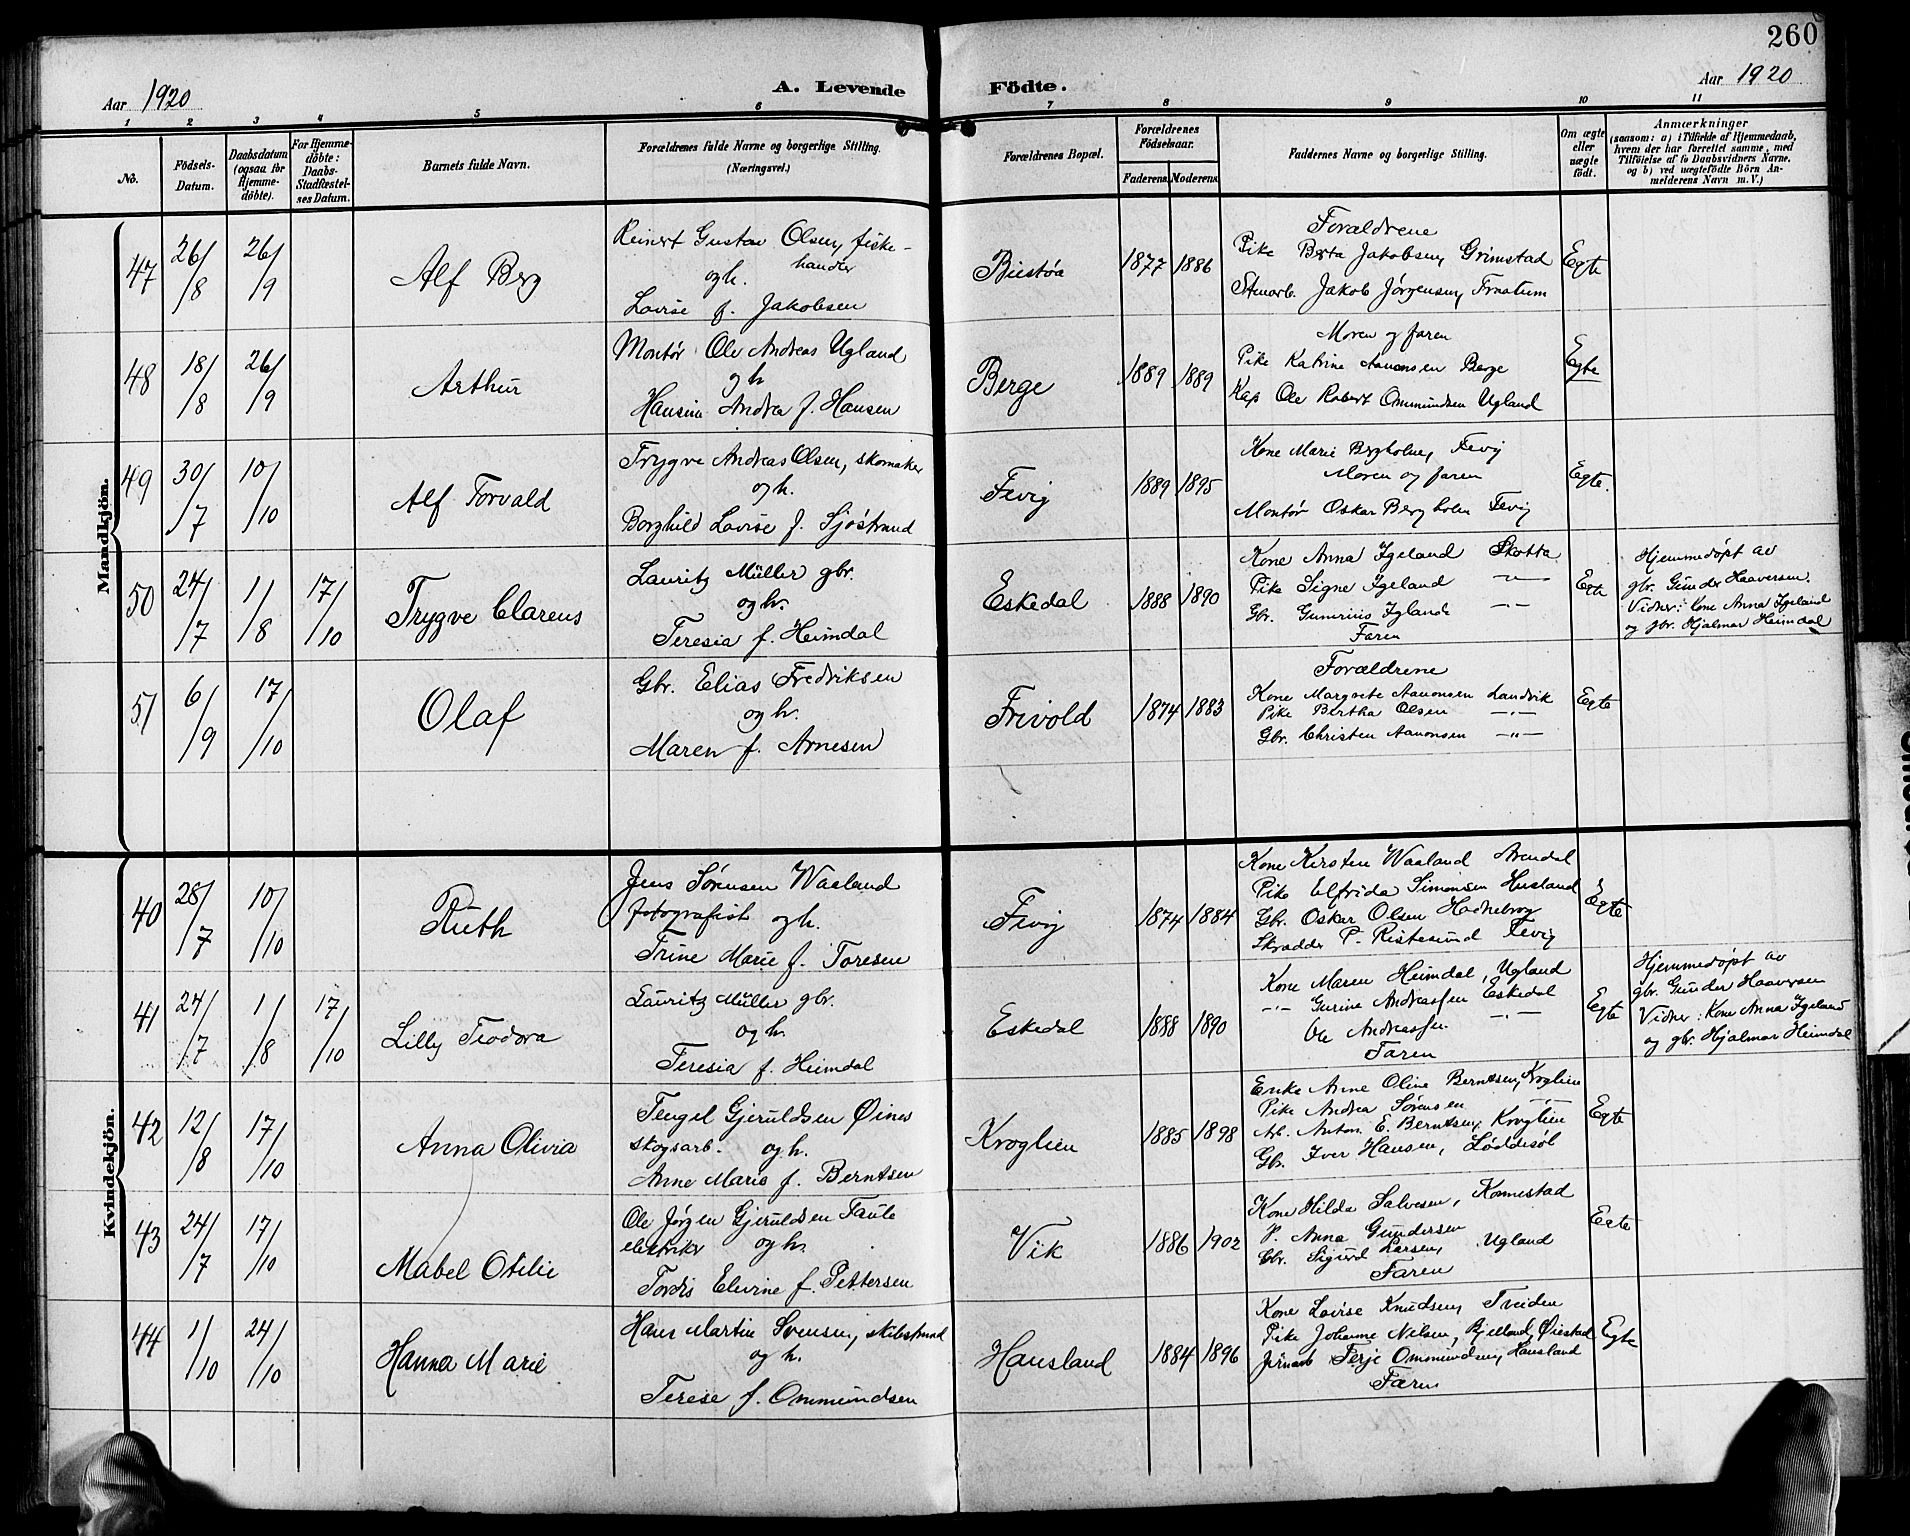 260
Aar 1920
A. Levende
Födte.
Aar 1920
1 2 3 4 5 6 7 8 9 10 11
No.
Födsels-
Datum.
Daabsdatum
(ogsaa for
Hjemme-
döbte).
For Hjemme-
döbte:
Daabs-
Stadfæstel-
ses Datum.
Barnets fulde Navn.
Forældrenes fulde Navne og borgerlige Stilling.
(Næringsvei.)
Forældrenes Bopæl.
Forældrenes
Födselsaar.
Faderens. Moderens.
Faddernes Navne og borgerlige Stilling.
Om ægte
eller
uægte
födt.
Anmærkninger
(saasom: a) i Tilfælde af Hjemmedaab,
hvem der har forrettet samme, med
Tilföielse af to Daabsvidners Navne,
og b) ved uægtefödte Börn An-
melderens Navn m.V.)
Mandkjön.
47 26/8 26/9
Alf Berg
Reinert Gustav Olsen, fiske-
handler
og h.
Lovise f. Jakobsen
1877 1886
Forældrene
Pike Berta Jakobsen, Grimstad
Stenarb. Jakob Jørgensen,
Egte
48 18/8 26/9
Arthur
Montør Ole Andreas Ugland
og h
Hansine Andrea f. Hansen
Berge
1889 1889
Moren og faren
Pike Katrine Aanonsen Berge
Kap Ole Robert Ommundsen Ugland
Egte
49 30/7 10/10
Alf Torvald
Trygve Andreas Olsen, skomaker
og h.
Borghild Lovise f. Sjøstrand
Fevig
1889 1895
Kone Marie Bergholm, Fevig
Moren og faren
Montør Oskar Bergholm Fevig
Egte.
50 24/7 1/8 17/10
Trygve Clarens
Lauritz Müller gbr.
og h.
Teresia f. Heimdal
Eskedal
1888 1890
Kone Anna Igeland Skotta
Pike Signe Igeland —"—
Gbr. Igland —"—
Faren
Egte
Hjemmedøpt av
gbr. Gunder Haaversen.
Vidner: Kone Anna Igeland
og gbr. Hjalmar Heimdal
51 6/9 17/10
Olaf
Gbr. Elias Fredriksen
og h.
Maren f. Arnesen
Frivold
1874 1883
Forældrene
Kone Margrete Aanonsen Landvik
Pike Bertha Olsen —"—
Gbr. Christen Aanonsen —"—
Egte
Kvindekjön.
40 28/7 10/10
Ruth
Jens Sørensen Waaland
fotografist og h.
Trine Marie f. Toresen
Fevig
1874 1884
Kone Kirsten Waaland Arendal
Pike Elfrida Simonsen
Gbr. Oskar Olsen
Skrædder P. Ristesund Fevig
Egte
41 24/7 1/8 17/10
Lilly Teodora
Lauritz Müller gbr.
og h.
Teresia f. Heimdal
Eskedal
1888 1890
Kone Maren Heimdal, Ugland
—"— Gurine Andreassen Eskedal
Ole Andreassen —"—
Faren
Egte
Hjemmedøpt av
gbr. Gunder Haaversen
Vidner: Kone Anna Igeland
og gbr. Hjalmar Heimdal
42 12/8 17/10
Anna Olivia
Tengel Gjeruldsen Øines
skogsarb. og h.
Anne Marie f. Berntsen
Kroglien
1885 1898
Enke Anne Oline Berntsen, Kroglien
Pike Andrea Sørensen —"—
Arb. Anton E. Berntsen, Kroglien
Gbr. Iver Hansen, Løddesøl
Egte
43 24/7 17/10
Mabel Otilie
Ole Jørgen Gjeruldsen Taule
elektriker og h.
Tordis Elevine f. Pettersen
Vik
1886 1902
Kone Hilda Salvesen,
P. Anna Gundersen
Gbr. Sigurd Larsen, Ugland
Faren
Egte
44 1/10 24/10
Hanna Marie
Hans Martin Svensen,
og h.
Terese f. Ommundsen
Hausland
1884 1896
Kone Lovise Knudsen, Tveiden
Pike Johanne Nilsen, Bjelland, Øiestad
Jernarb Terje Ommundsen, Hausland
Faren
Egte